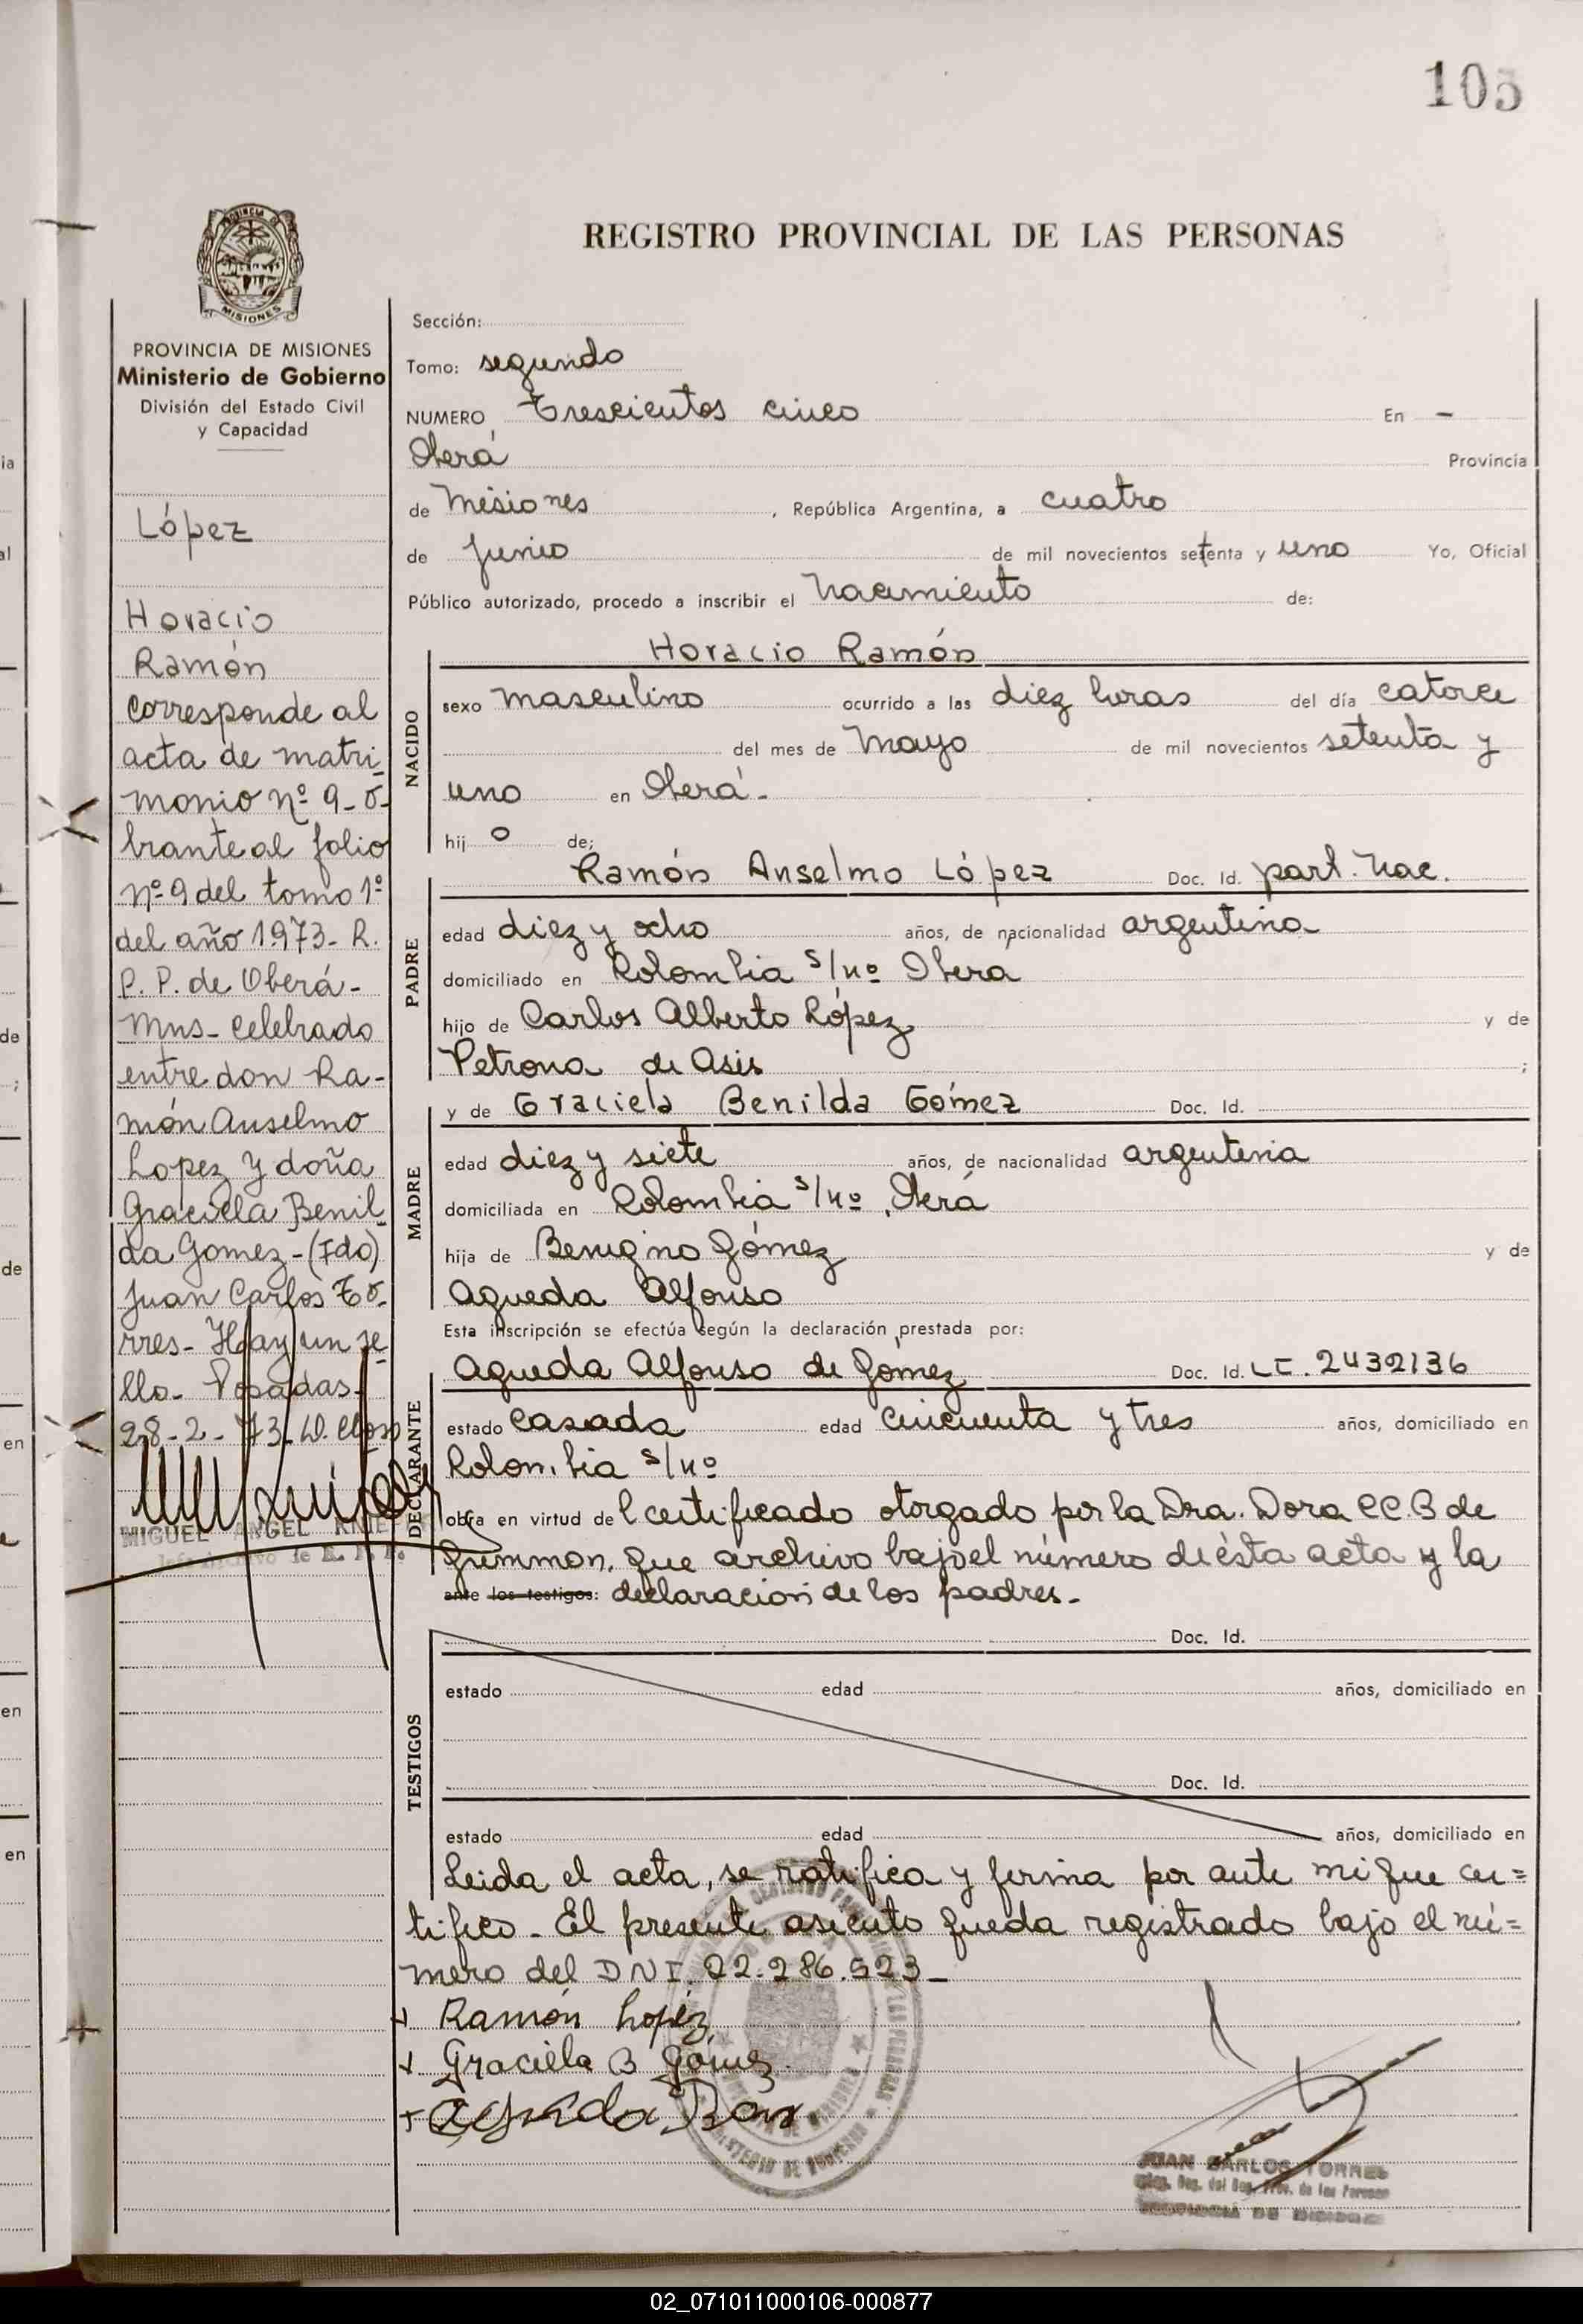 105
REGISTRO PROVINCIAL DE LAS PERSONAS
PROVINCIA DE MISIONES
Ministerio de Gobierno
División del Estado Civil
y Capacidad
López
Horacio
Ramón
corresponde al
acta de matri
monio nº 9- o-
brante al folio
nº 9 del tomo 1º
del año 1973- R.
P. P. de Oberá-
Mns- celebrado
entre don Ra-
món Anselmo
Lopez y doña
Graciela Benil
da Gomez-(Fdo)
Juan Carlos To-
rres- Hay un se
llo- Posadas-
28-2-73-
MIGUEL ANGEL
Sección:
Tomo: segundo
NUMERO Trescientos cinco En -
Oberá Provincia
de Misiones, República Argentina, a cuatro
de Junio de mil novecientos setenta y uno Yo, Oficial
Público autorizado, procedo a inscribir el Nacimiento de:
Horacio Ramón
NACIDO
sexo masculino ocurrido a las diez horas del día catorce
del mes de Mayo de mil novecientos setenta y
uno en Oberá-
hij o de;
Ramón Anselmo López Doc. Id. part. Nac.
PADRE
edad diez y ocho años, de nacionalidad argentina
domiciliado en Kolombia s/nº Obera
hijo de Carlos Alberto López y de
Petrona de Asis ;
y de Graciela Benilda Gómez Doc. Id.
MADRE
edad diez y siete años, de nacionalidad argentina
domiciliada en Kolombia s/nº Oberá
hija de Benigno Gómez y de
Agueda Alfonso
Esta inscripción se efectúa según la declaración prestada por:
Agueda Alfonso de Gómez Doc. Id. LC. 2432136
DECLARANTE
estado casada edad cincuenta y tres años, domiciliado en
Kolombia s/nº
obra en virtud del certificado otorgado por la Dra. Dora CC. B de
que archivo bajo el número de ésta acta y la
ante los testigos: declaracion de los padres-
Doc. Id.
TESTIGOS
estado edad años, domiciliado en
Doc. Id.
estado edad años, domiciliado en
Leida el acta, se ratifica y firma por ante mi que cer=
tifico- El presente asiento queda registrado bajo el nú=
mero del DNI. 22.286.523-
Ramón Lopéz
Graciela B Gómez
JUAN CARLOS TORRES
02_071011000106-000877